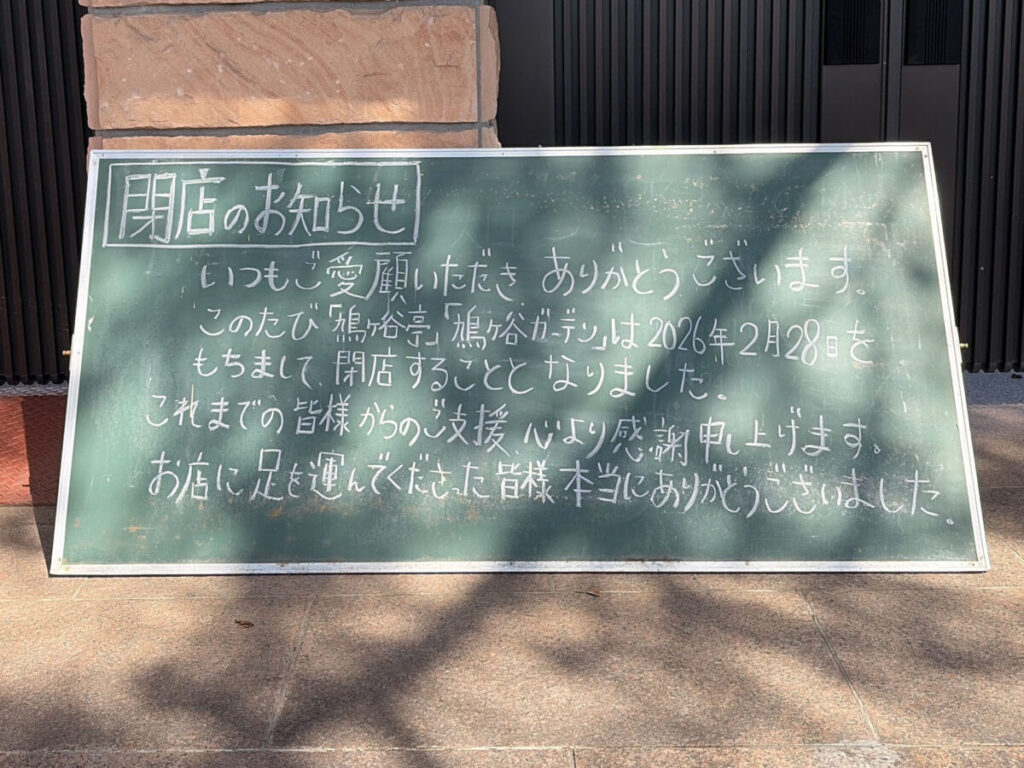 閉店のお知らせ
いつもご愛顧いただき ありがとうございます。
このたび「鳩ヶ谷亭」「鳩ヶ谷ガーデン」は2026年2月28日を
もちまして、閉店することとなりました。
これまでの皆様からのご支援、心より感謝申し上げます。
お店に足を運んでくださった皆様本当にありがとうございました。